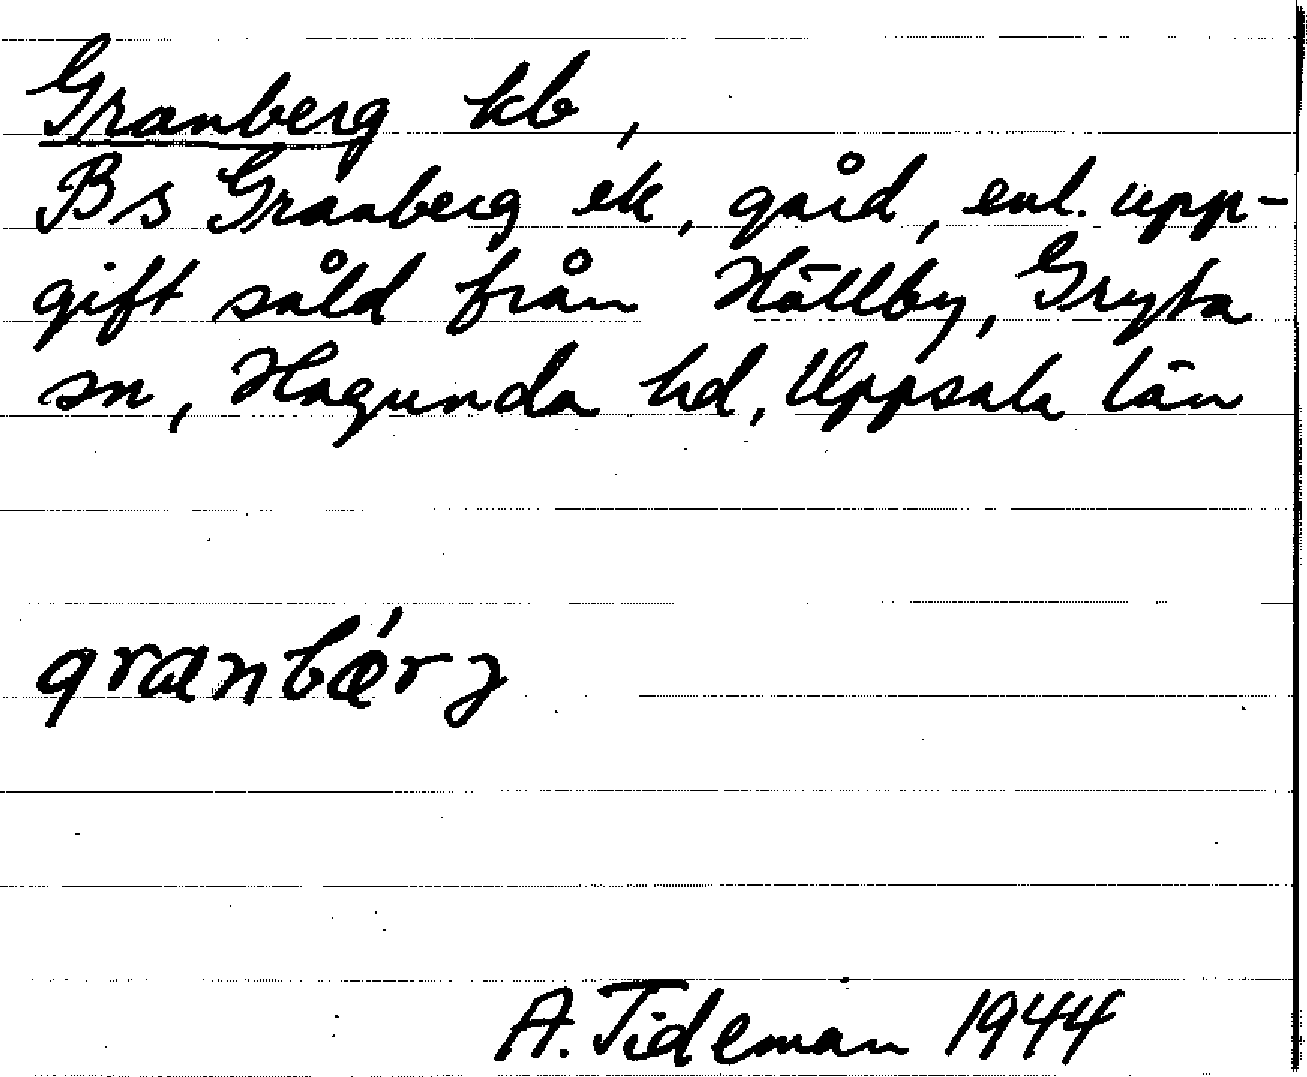 Granberg kb,
Bs Granberg ek, gård, enl. upp-
gift såld från Hällby, Gryta
sn, Hagunda hd, Uppsala län
granbærg
A. Tideman 1944